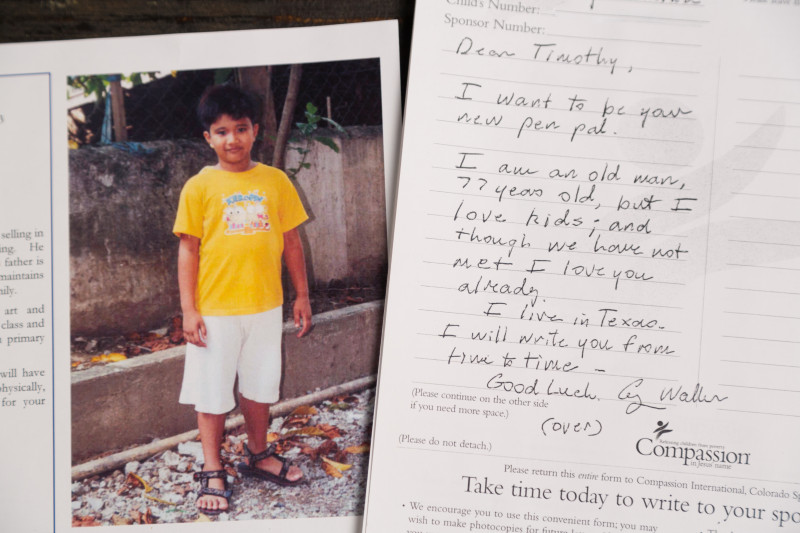 selling in
ing. He
father is
maintains
mily.
art and
class and
primary
will have
physically,
for your
Child's Number:
Sponsor Number:
Dear Timothy,
I want to be your
new pen pal.
I am an old man,
77 years old, but I
love kids; and
though we have not
met I love you
already.
I live in Texas.
I will write you from
time to time –
Good Luck. Cy Walker
(over)
(Please continue on the other side
if you need more space.)
(Please do not detach.)
Releasing children from poverty
Compassion
in Jesus' name
Please return this entire form to Compassion International, Colorado Sp
Take time today to write to your spo
• We encourage you to use this convenient form; you may
wish to make photocopies for future